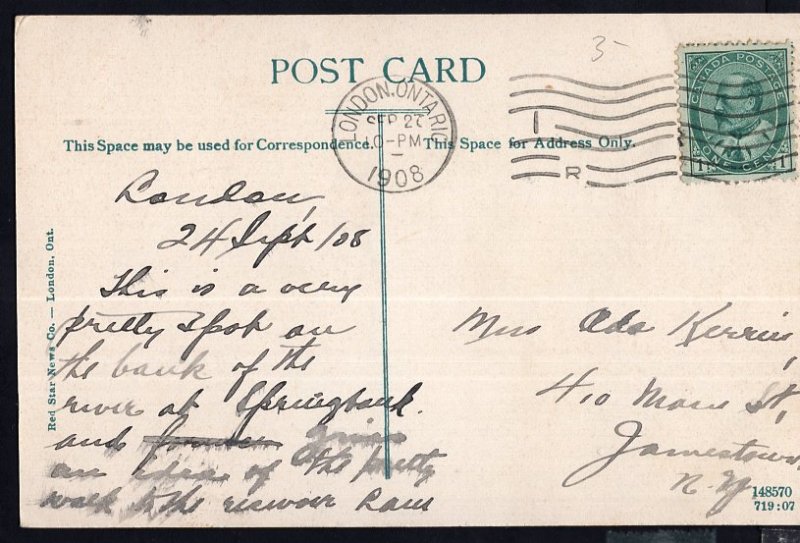 3-
POST CARD
LONDON, ONTARIO
SEP 27
10-PM
1908
I
R
CANADA POSTAGE
ONE CENT
1 1
This Space may be used for Correspondence.
This Space for Address Only.
London,
24 Sept/08
This is a very
pretty spot on
the bank of the
river at Springbank.
and gives
an idea of the pretty
walk to the
Miss Ada
410 St,
Jamestown
N.Y.
Red Star News Co. — London, Ont.
148570
719:07